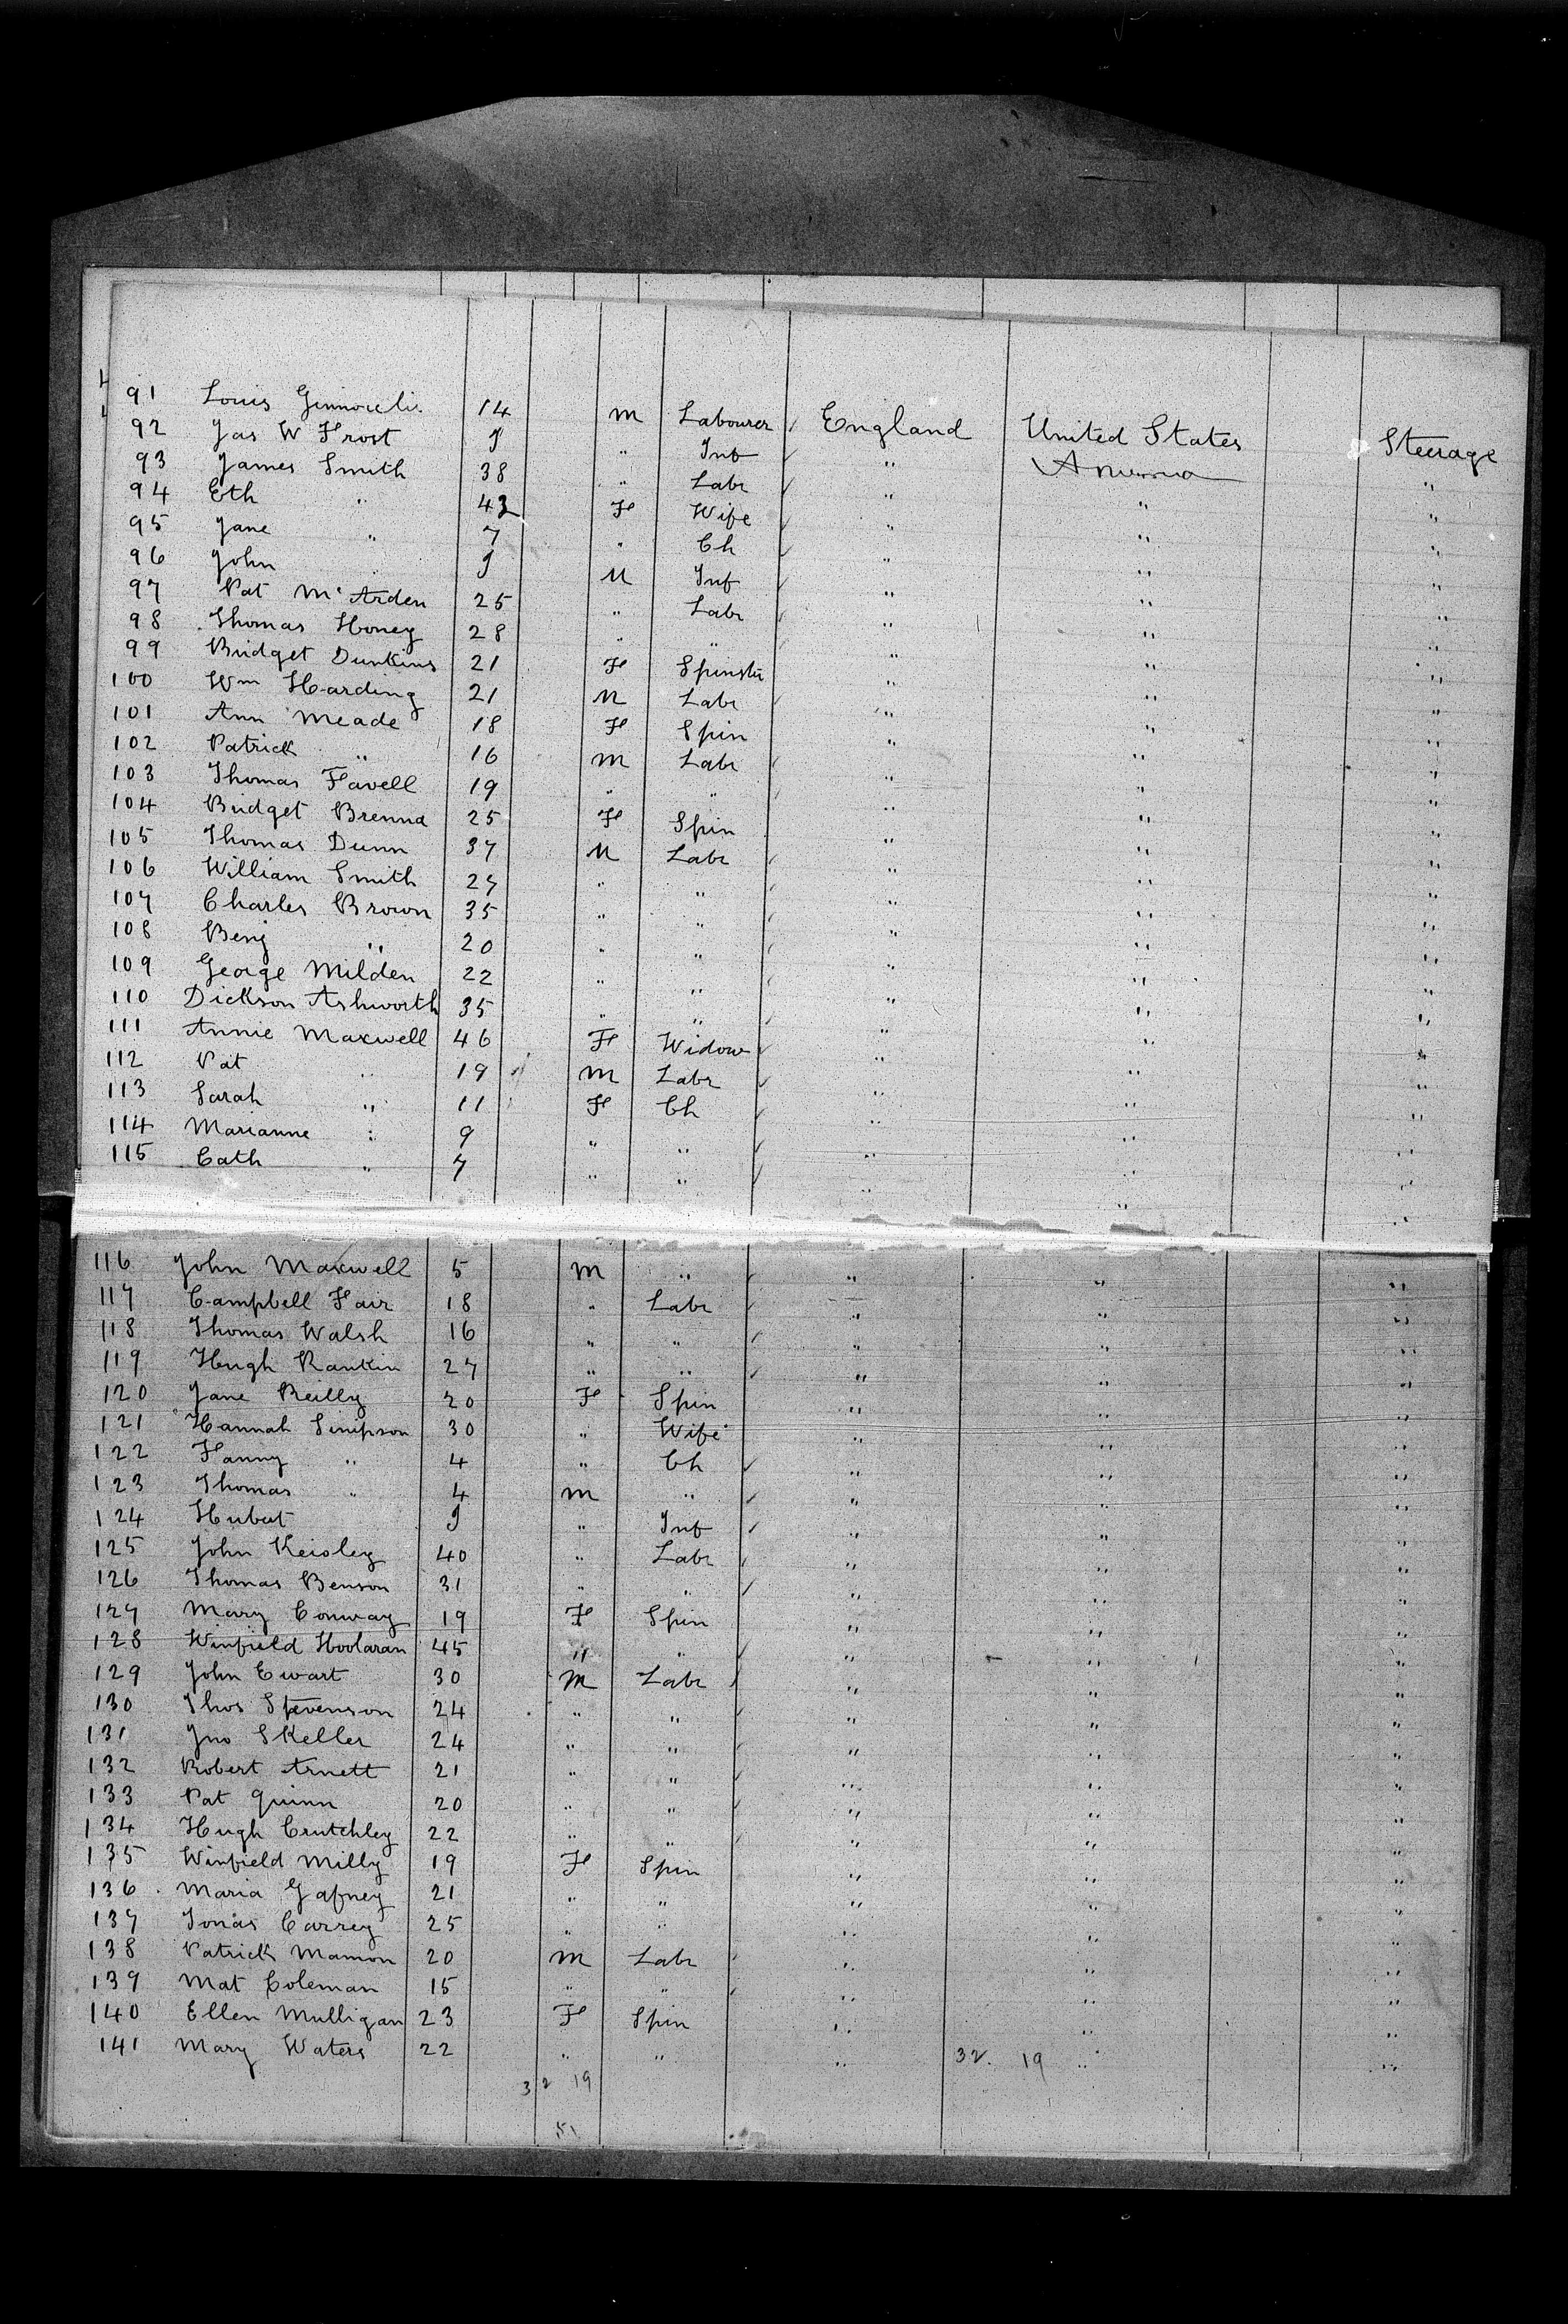 91 Louis 14 m Labourer England United States Steerage
92 Jas W Frost J " Inf " America "
93 James Smith 38 " Labr " " "
94 Eth " 42 F Wife " " "
95 Jane " 7 " Ch " " "
96 John " J M Inf " " "
97 Pat McArden 25 " Labr " " "
98 Thomas Honey 28 " " " " "
99 Bridget Dunkins 21 F Spinstr " " "
100 Wm Harding 21 M Labr " " "
101 Ann Meade 18 F Spin " " "
102 Patrick " 16 m Labr " " "
103 Thomas Favell 19 " " " " "
104 Bridget Brenna 25 F Spin " " "
105 Thomas Dunn 37 M Labr " " "
106 William Smith 27 " " " " "
107 Charles Brown 35 " " " " "
108 Benj " 20 " " " " "
109 George Milden 22 " " " " "
110 Dickson Ashworth 35 " " " " "
111 Annie Maxwell 46 F Widow " " "
112 Pat " 19 m Labr " " "
113 Sarah " 11 F Ch " " "
114 Marianne " 9 " " " " "
115 Cath " 7 " " " " "
116 John Maxwell 5 m " " " "
117 Campbell Fair 18 " Labr " " "
118 Thomas Walsh 16 " " " " "
119 Hugh Rankin 27 " " " " "
120 Jane Reilly 20 F Spin " " "
121 Hannah Simpson 30 " Wife " " "
122 Fanny " 4 " Ch " " "
123 Thomas " 4 m " " " "
124 Hubert J " Inf " " "
125 John Keisley 40 " Labr " " "
126 Thomas Benson 31 " " " " "
127 Mary Conway 19 F Spin " " "
128 Winfield Hoolaran 45 " " " " "
129 John Ewart 30 M Labr " " "
130 Thos Stevenson 24 " " " " "
131 Jno Skeller 24 " " " " "
132 Robert Arnett 21 " " " " "
133 Pat Quinn 20 " " " " "
134 Hugh Crutchley 22 " " " " "
135 Winfield Milly 19 F Spin " " "
136 Maria Gafney 21 " " " " "
137 Jonas Carrey 25 " " " " "
138 Patrick Mamon 20 m Labr " " "
139 Mat Coleman 15 " " " " "
140 Ellen Mulligan 23 F Spin " " "
141 Mary Waters 22 " " " 32. 19 " "
32 19
51